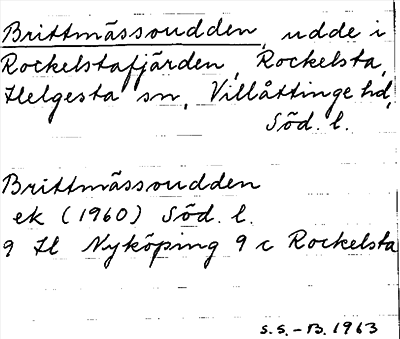 Brittmässoudden, udde i
Rockelstafjärden, Rockelsta,
Helgesta sn, Villåttinge hd,
Söd. l.
Brittmässoudden
ek (1960) Söd. l.
9 H Nyköping 9 c Rockelsta
S.S. - B. 1963